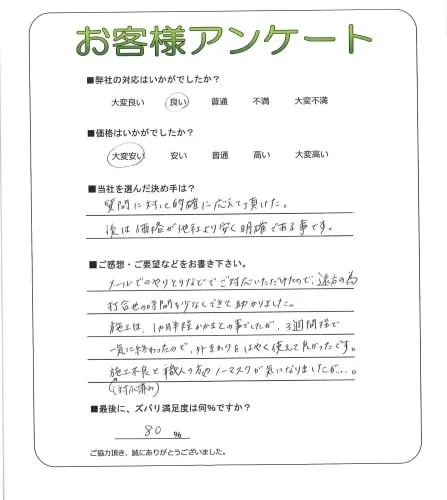 お客様アンケート
■弊社の対応はいかがでしたか?
大変良い 良い 普通 不満 大変不満
■価格はいかがでしたか?
大変安い 安い 普通 高い 大変高い
■当社を選んだ決め手は?
質問に対して的確に応えて頂けた。
後は価格が他社より安く明確である事です。
■ご感想・ご要望などをお書き下さい。
メールでのやりとりなどでご対応いただけたので、遠方の為
打合せの時間を少なくできて助かりました。
施工は、1か月半程かかるとの事でしたが、3週間程で
一気に終わったので、外まわりをはやく使えて良かったです。
施工不良と職人の方のノーマスクが気になりましたが…。
(対応済み)
■最後に、ズバリ満足度は何%ですか?
80 %
ご協力頂き、誠にありがとうございました。